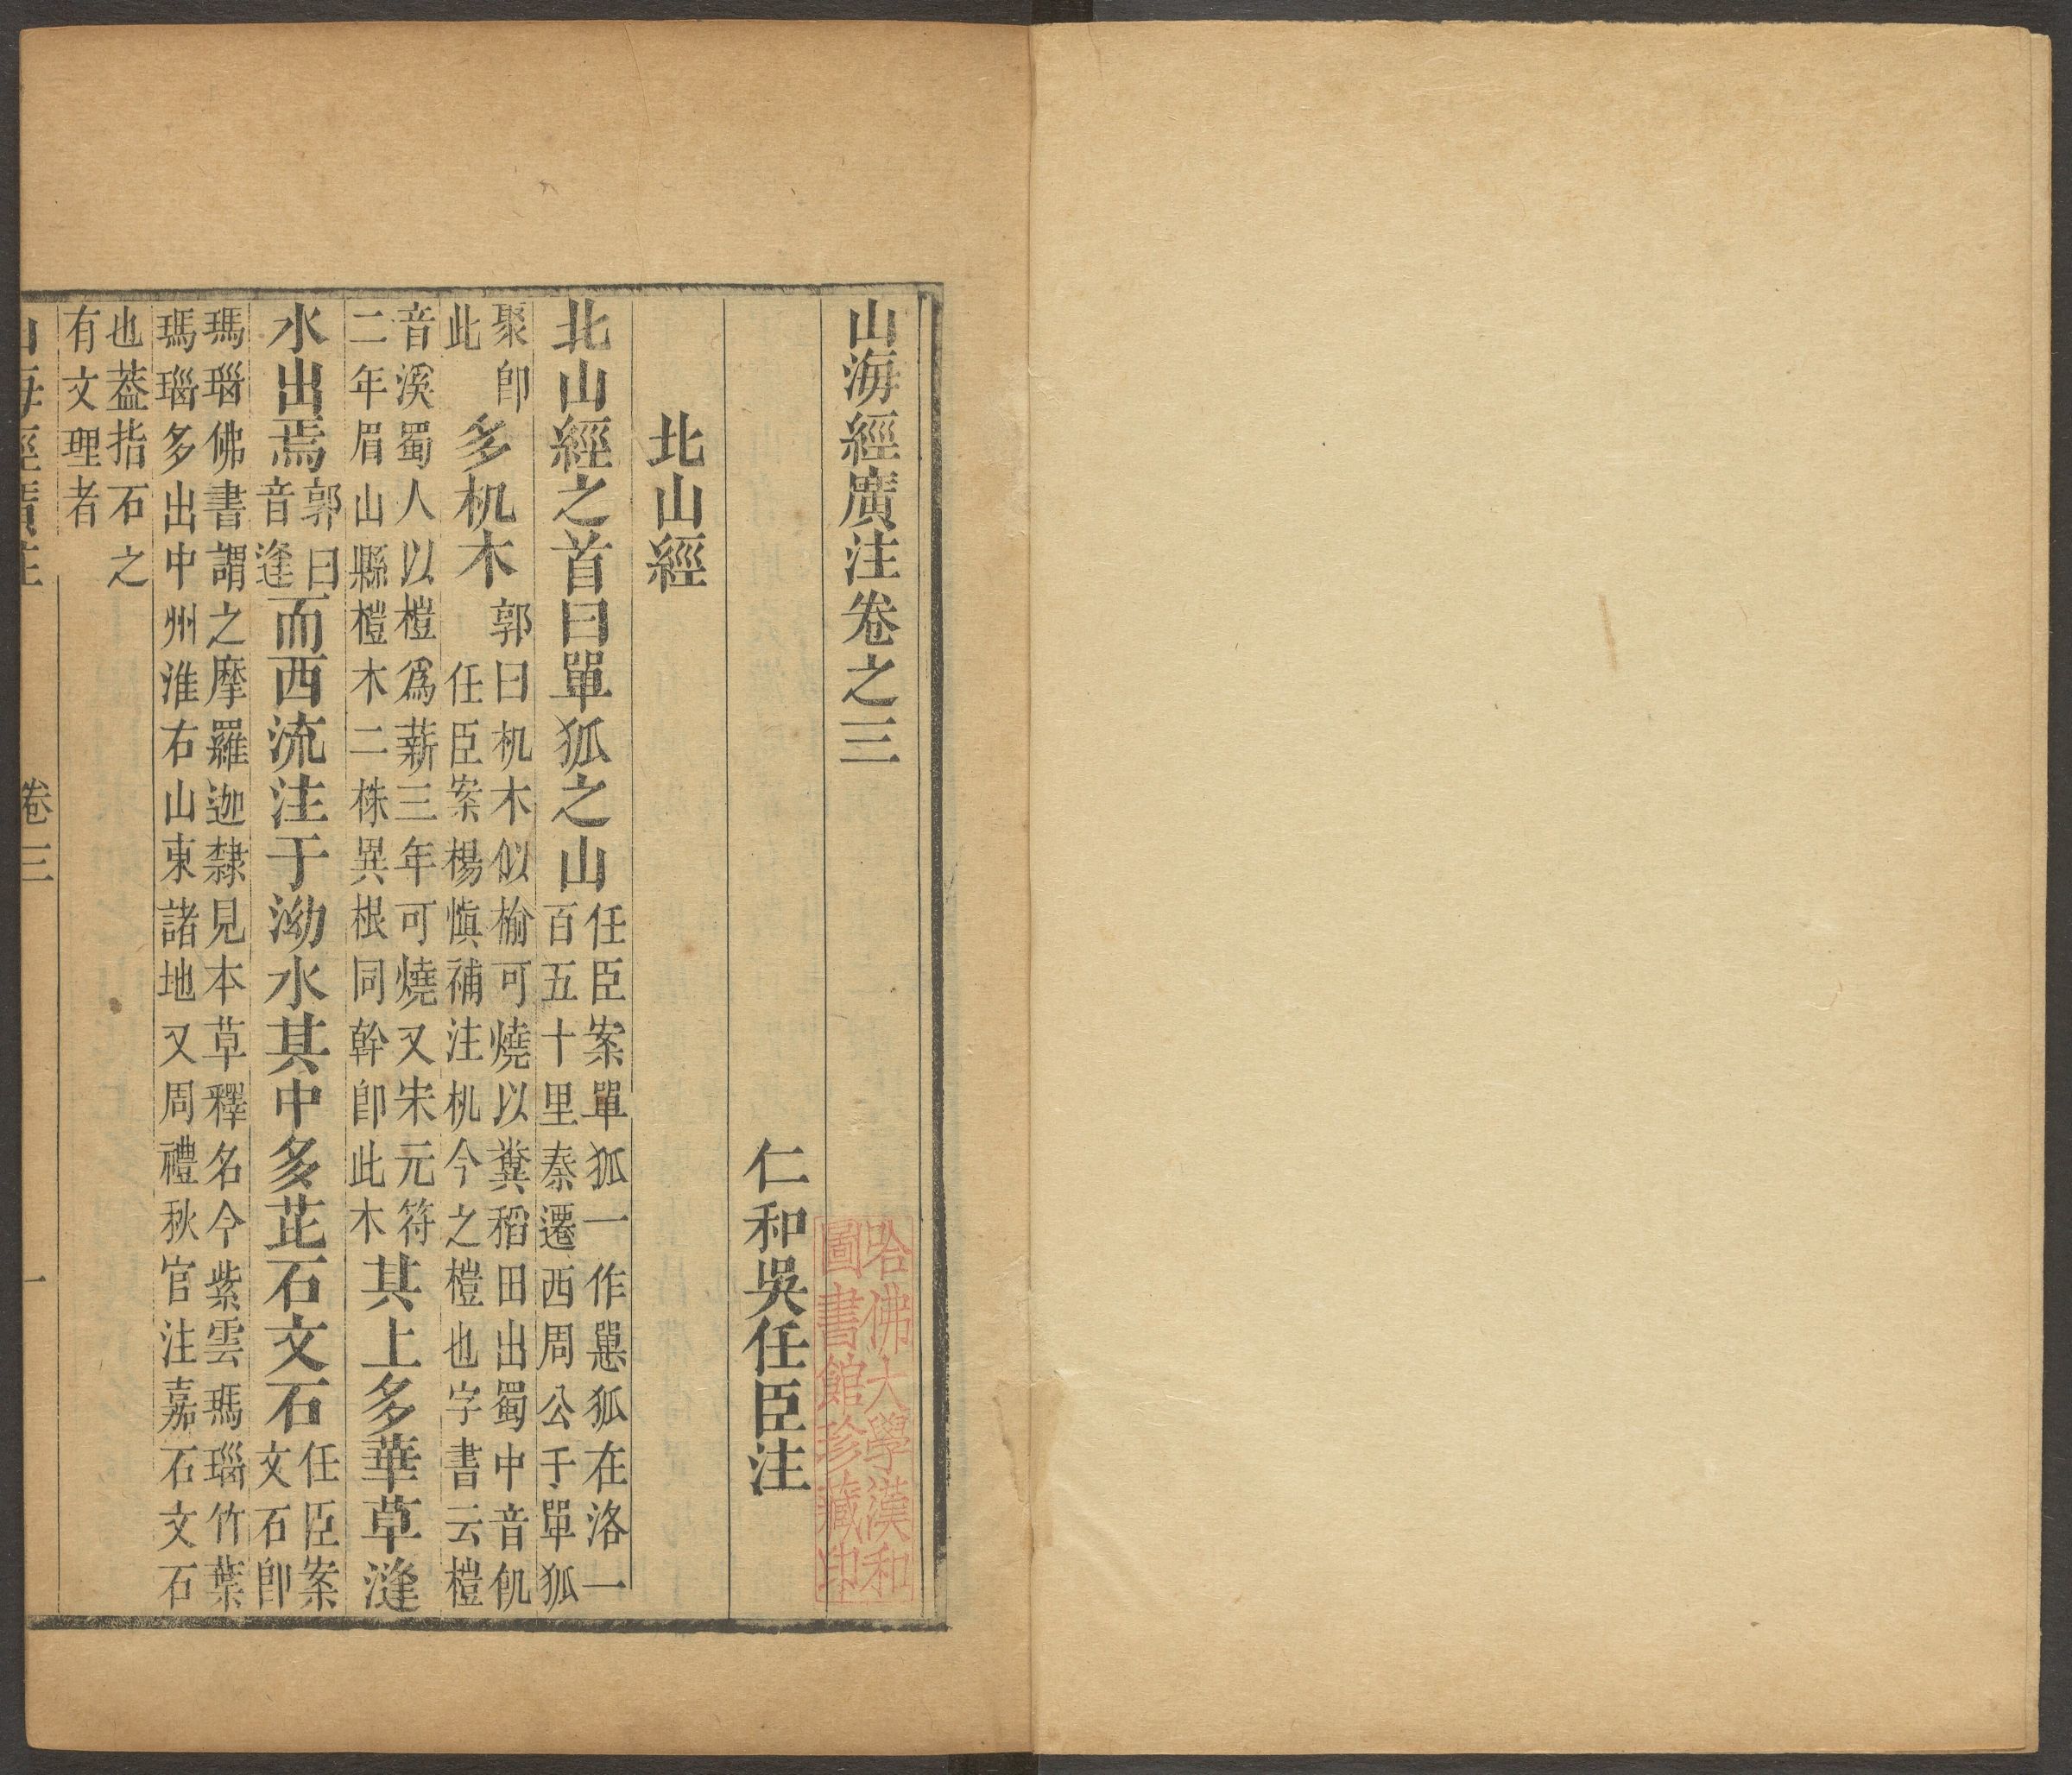 山海經廣注卷之三
哈佛大學漢和
圖書館珍藏印
仁和吳任臣注
北山經
北山經之首曰單狐之山任臣案單狐一作𢠸狐在洛一百五十里秦遷西周公于單狐
聚卽此多机木郭曰机木似榆可燒以糞稻田出蜀中音飢任臣案楊愼補注机今之榿也字書云榿
音溪蜀人以榿爲薪三年可燒又宋元符二年眉山縣榿木二株異根同幹卽此木其上多華草漨
水出焉郭曰音逢而西流注于泑水其中多芷石文石任臣案文石卽
瑪瑙佛書謂之摩羅迦隸見本草釋名今紫雲瑪瑙竹葉瑪瑙多出中州淮右山東諸地又周禮秋官注嘉石文石
也葢指石之有文理者
山海經廣注 卷三 一